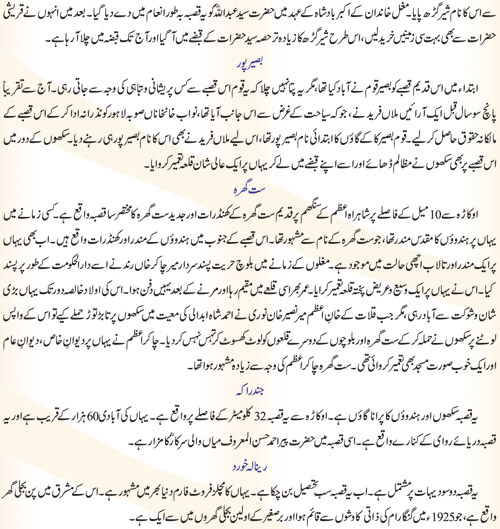 سے اس کا نام شیر گڑھ پایا۔ مغل خاندان کے اکبر بادشاہ کے عہد میں حضرت سید عبداللہ کو یہ قصبہ بہ طور انعام میں دے دیا گیا۔ بعد میں انہوں نے قریشی
حضرات سے بھی بہت سی زمینیں خرید لیں، اس طرح شیر گڑھ کا زیادہ تر حصہ سید حضرات کے قبضے میں آ گیا اور آج تک قبضہ میں چلا آ رہا ہے۔
بصیر پور
ابتداء میں اس قدیم قصبے کو بصیر قوم نے آباد کیا تھا، مگر یہ پتا نہیں چلا کہ یہ قوم اس قصبے سے کس پریشانی و تباہی کی وجہ سے جاتی رہی۔ آج سے تقریباً
پانچ سو سال قبل ایک آرائیں ملاں فرید نے، جو کہ سیاحت کے غرض سے اس جانب آیا تھا، نواب خانخاناں صوبہ لاہور کو نذرانہ ادا کر کے اس قصبے کے
مالکانہ حقوق حاصل کر لیے۔ قوم بصیر کا کے گاؤں کا ابتدائی نام بصیر پور تھا، اس لیے ملاں فرید نے بھی اس کا نام بصیر پور ہی رہنے دیا۔ سکھوں کے دور میں
اس قصبے پر بھی سکھوں نے مظالم ڈھائے اور اسے اپنے قبضے میں لے کر یہاں پر ایک عالی شان قلعہ تعمیر کروایا۔
ست گھرہ
اوکاڑہ سے 10 میل کے فاصلے پر شاہراہ اعظم کے سنگھم پر قدیم ست گھرہ کے کھنڈرات اور جدید ست گھرہ کا مختصر سا قصبہ واقع ہے۔ کسی زمانے میں
یہاں پر ہندوؤں کا مقدس مندر تھا، جو ست گھرہ کے نام سے مشہور تھا۔ اس قصبے کے جنوب میں ہندوؤں کے مندر اور کھنڈرات واقع ہیں۔ اب بھی یہاں
پر ایک مندر اور تالاب اچھی حالت میں موجود ہے۔ مغلوں کے زمانے میں بلوچ حریت پسند سردار میر چاکر خاں رند نے اسے دارالحکومت کے طور پر پسند
کیا۔ اس نے یہاں پر ایک وسیع و عریض پختہ قلعہ تعمیر کرایا۔ عمر بھر اسی قلعے میں مقیم رہا اور مرنے کے بعد یہیں دفن ہوا۔ اس کی اولاد خالصہ دور تک یہاں بڑی
شان و شوکت سے آباد رہی، مگر جب قلات کے خانِ اعظم میر نصیر خان نوری نے احمد شاہ ابدالی کی معیت میں سکھوں پر تابڑ توڑ حملے کیے تو اس کے واپس
لوٹنے پر سکھوں نے حملہ کر کے ست گھرہ اور بلوچوں کے دوسرے قلعوں کو لوٹ کھسوٹ کر تہس نہس کر دیا۔ چاکر اعظم نے یہاں پر دیوانِ خاص، دیوانِ عام
اور ایک خوب صورت مسجد بھی تعمیر کروائی تھی۔ ست گھرہ چاکر اعظم کی وجہ سے زیادہ مشہور ہوا تھا۔
جندراکہ
یہ قصبہ سکھوں اور ہندوؤں کا پرانا گاؤں ہے۔ اوکاڑہ سے یہ قصبہ 32 کلومیٹر کے فاصلے پر واقع ہے۔ یہاں کی آبادی 60 ہزار کے قریب ہے اور یہ
قصبہ دریائے راوی کے کنارے واقع ہے۔ اسی قصبہ میں حضرت پیر احمد حسن المعروف میاں والی سرکار کا مزار ہے۔
رینالہ خورد
یہ قصبہ دو سو دیہات پر مشتمل ہے۔ اب یہ قصبہ سب تحصیل بن چکا ہے۔ یہاں کا مچلز فروٹ فارم دنیا بھر میں مشہور ہے۔ اس کے مشرق میں پن بجلی گھر
واقع ہے، جو 1925ء میں گنگا رام کی ذاتی کاوشوں سے قائم ہوا اور برصغیر کے اولین بجلی گھروں میں سے ایک ہے۔